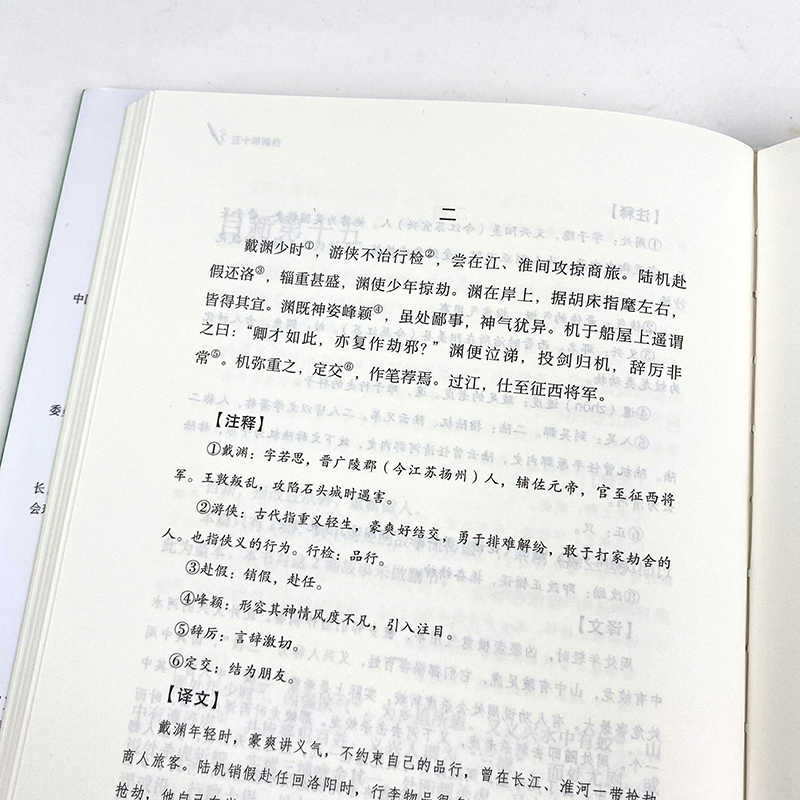 二
戴渊少时①，游侠不治行检②，尝在江、淮间攻掠商旅。陆机赴
假还洛③，辎重甚盛，渊使少年掠劫。渊在岸上，据胡床指麾左右，
皆得其宜。渊既神姿峰颖④，虽处鄙事，神气犹异。机于船屋上遥谓
之曰：“卿才如此，亦复作劫邪？”渊便泣涕，投剑归机，辞厉非
常⑤。机弥重之，定交⑥，作笔荐焉。过江，仕至征西将军。
【注释】
①戴渊：字若思，晋广陵郡（今江苏扬州）人，辅佐元帝，官至征西将
军。王敦叛乱，攻陷石头城时遇害。
②游侠：古代指重义轻生，豪爽好结交，勇于排难解纷，敢于打家劫舍的
人。也指侠义的行为。行检：品行。
③赴假：销假，赴任。
④峰颖：形容其神情风度不凡，引入注目。
⑤辞厉：言辞激切。
⑥定交：结为朋友。
【译文】
戴渊年轻时，豪爽讲义气，不约束自己的品行，曾在长江、淮河一带抢劫
商人旅客。陆机销假赴任回洛阳时，行李物品很
抢劫，他自己在